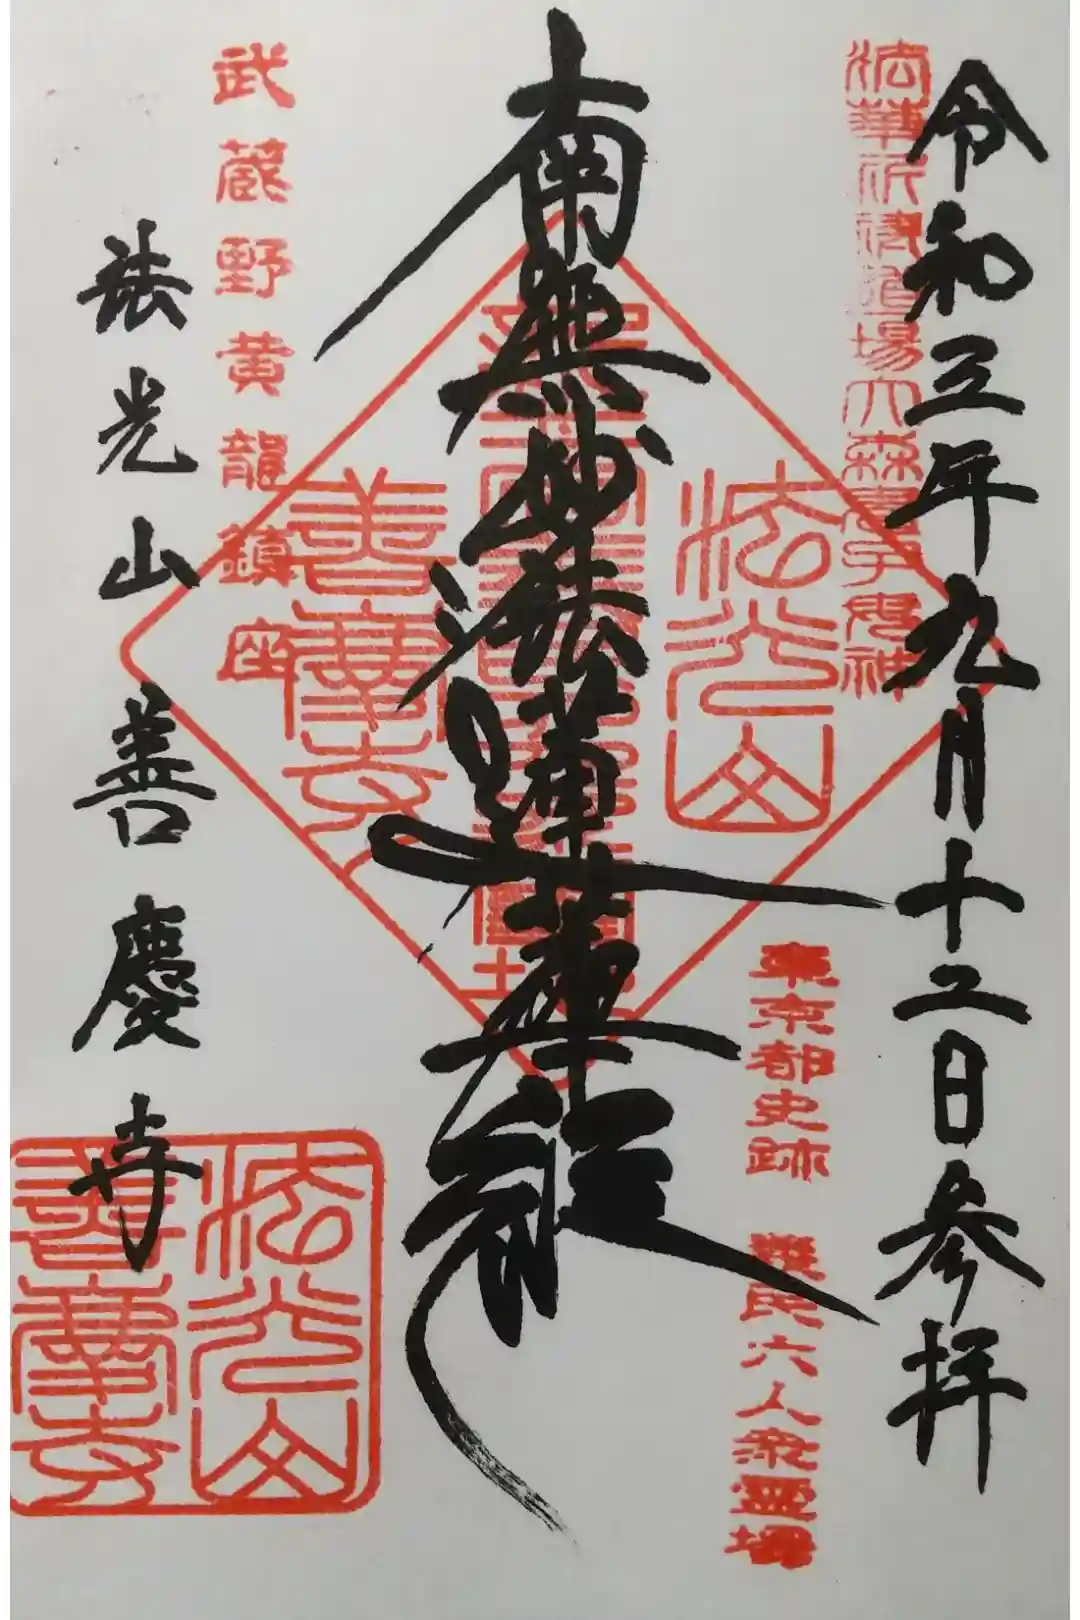 令和三年九月十二日参拝
法華祈祷道場大森鬼子母神
東京都史跡 義民六人衆霊場
南無妙法蓮華経
法光山
善慶寺
武蔵野黄龍鎮座
法光山善慶寺
法光山
善慶寺